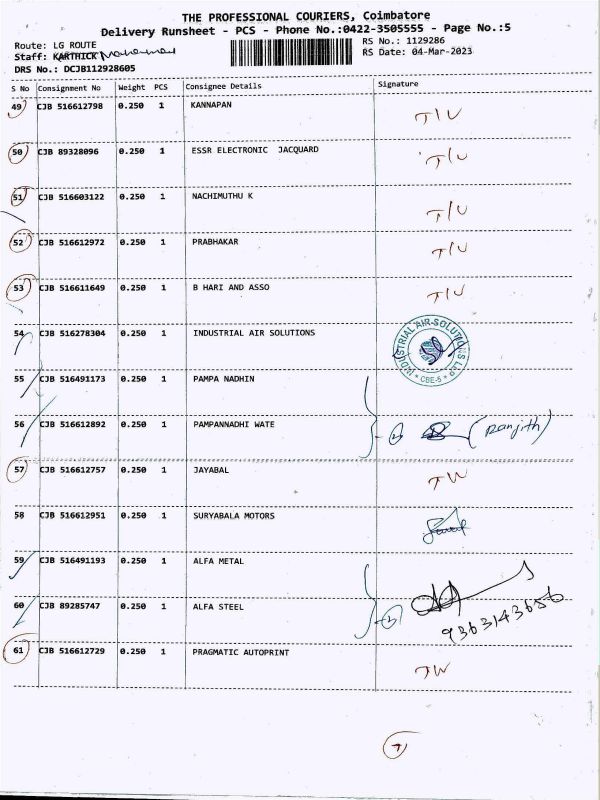 THE PROFESSIONAL COURIERS, Coimbatore
Delivery Runsheet - PCS - Phone No.:0422-3505555 - Page No.:5
Route: LG ROUTE RS No.: 1129286
Staff: KARTHICK RS Date: 04-Mar-2023
DRS No.: DCJB112928605
S No Consignment No Weight PCS Consignee Details Signature
49 CJB 516612798 0.250 1 KANNAPAN T/W
50 CJB 89328096 0.250 1 ESSR ELECTRONIC JACQUARD T/W
51 CJB 516603122 0.250 1 NACHIMUTHU K T/W
52 CJB 516612972 0.250 1 PRABHAKAR T/W
53 CJB 516611649 0.250 1 B HARI AND ASSO T/W
54 CJB 516278304 0.250 1 INDUSTRIAL AIR SOLUTIONS INDUSTRIAL AIR-SOLUTIONS LLP * CBE-5 *
55 CJB 516491173 0.250 1 PAMPA NADHIN
56 CJB 516612892 0.250 1 PAMPANNADHI WATE 2 (Ranjith)
57 CJB 516612757 0.250 1 JAYABAL TW
58 CJB 516612951 0.250 1 SURYABALA MOTORS
59 CJB 516491193 0.250 1 ALFA METAL
60 CJB 89285747 0.250 1 ALFA STEEL 2 9363143656
61 CJB 516612729 0.250 1 PRAGMATIC AUTOPRINT TW
7